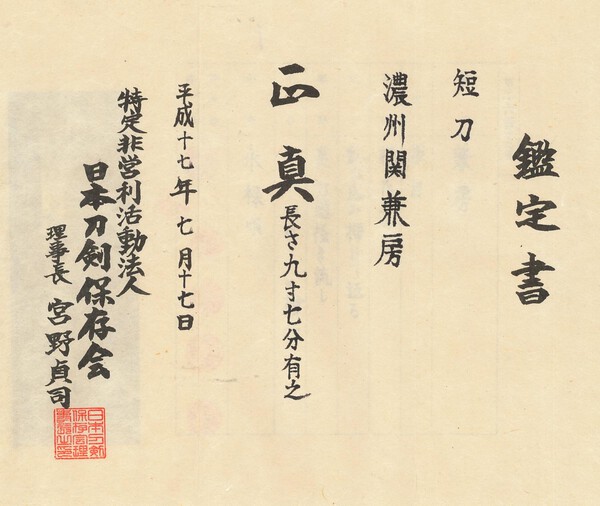 鑑定書
短刀
濃州関兼房
正真
長さ九寸七分有之
平成十七年七月十七日
特定非営利活動法人
日本刀剣保存会
理事長 宮野貞司